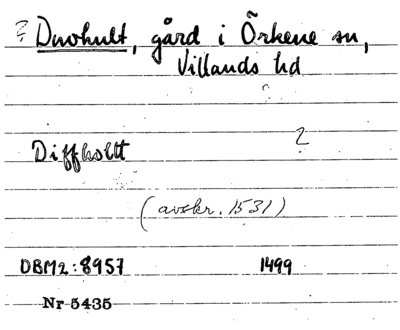 ? Duvhult, gård i Örkene sn,
Villands hd
Diffholtt ?
(avskr. 1531)
DBM2:8957 1499
Nr 5435